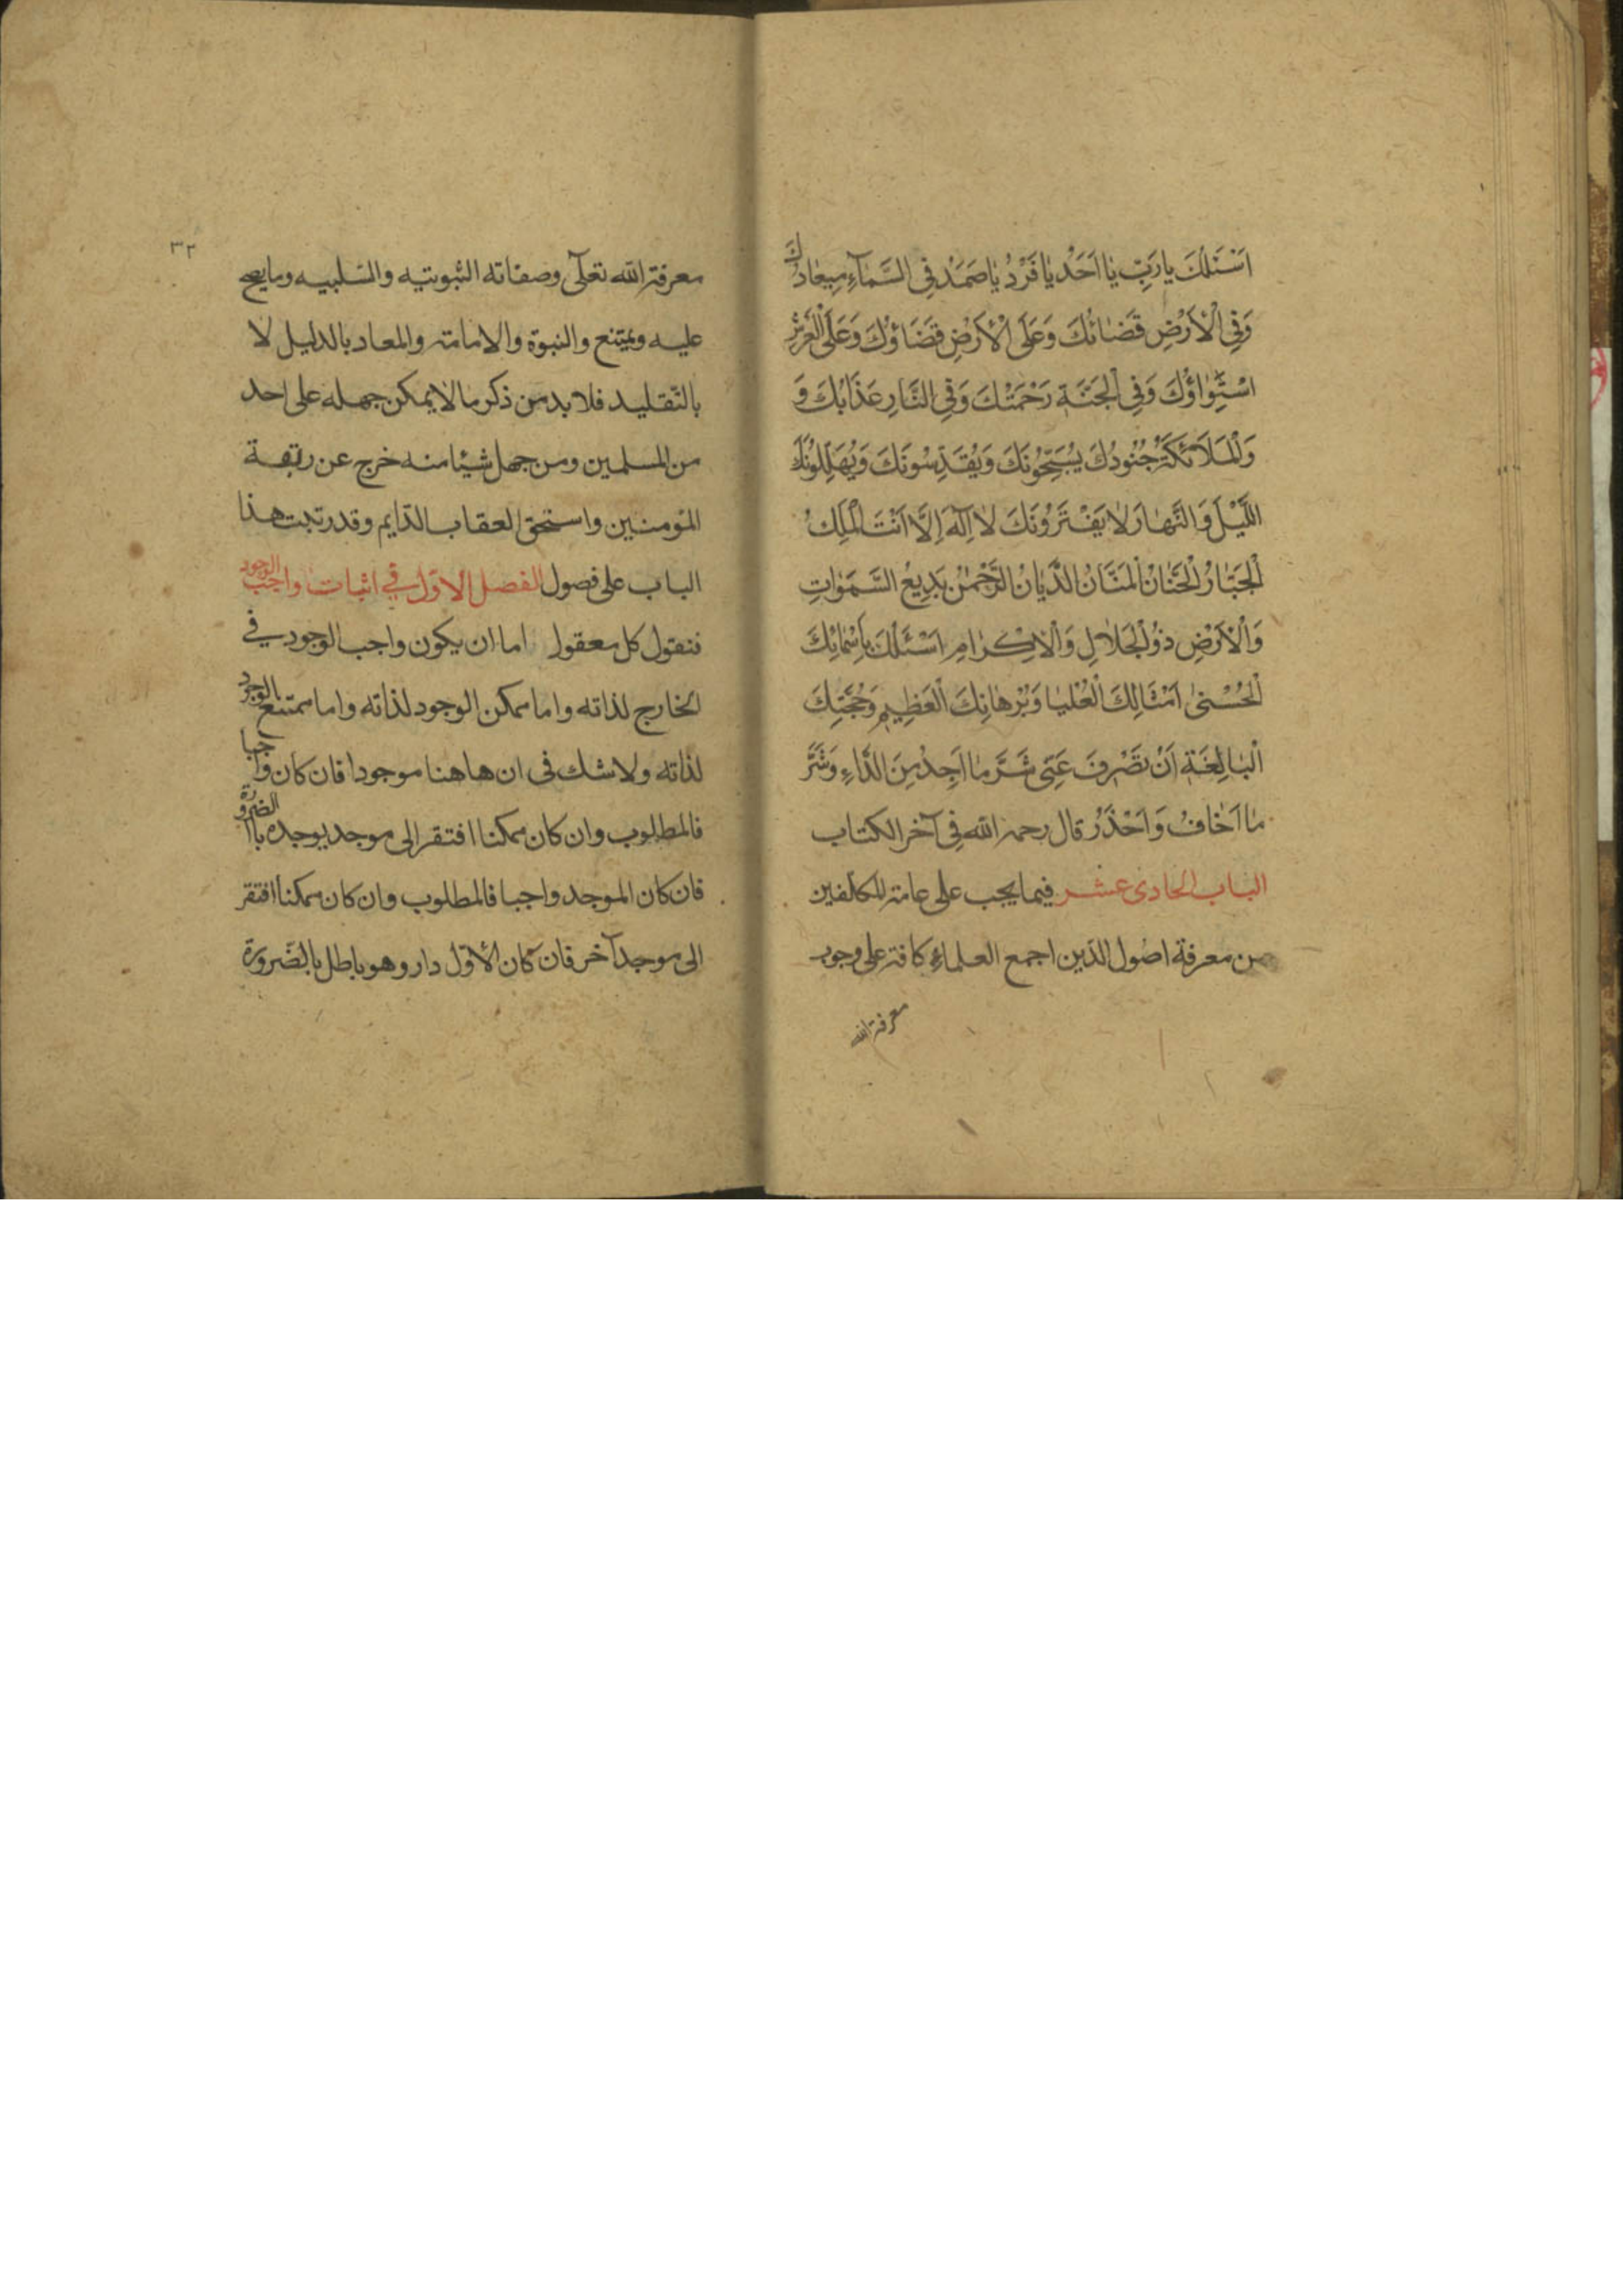 اَسْئَلُكَ يا رَبِّ يٰا اَحَدُ يٰا فَرْدُ يٰا صَمَدُ فِى السَّمٰآءِ مِيعٰادُكَ
وَفِى الْاَرْضِ قَضٰائُكَ وَعَلَى الْاَرْضِ قَضٰاؤُكَ وَعَلَى الْعَرْشِ
اسْتِوٰاؤُكَ وَفِى الْجَنَّةِ رَحْمَتُكَ وَفِى النَّارِ عَذٰابُكَ وَ
وَالْمَلَائكَةُ جُنُودُكَ يُسَبِّحُونَكَ وَيُقَدِّسُونَكَ وَيُهَلِّلُونَكَ
اللَّيْلَ وَالنَّهٰارَ لٰا يَفْتَرُونَكَ لٰا اِلٰهَ اِلَّا اَنْتَ الْمَلِكُ
الْجَبّٰارُ الْحَنّٰانُ الْمَنّٰانُ الدَّيّٰانُ الرَّحْمٰنُ بَدِيعُ السَّمٰوٰاتِ
وَالْاَرْضِ ذُوالْجَلٰالِ وَالْاِكْرٰامِ اَسْئَلُكَ بِاَسْمٰائِكَ
الْحُسْنىٰ اَمْثٰالِكَ الْعُلْيٰا وَبُرْهٰانِكَ الْعَظِيمِ وَحُجَّتِكَ
الْبٰالِغَةِ اَنْ تَصْرِفَ عَنِّى شَرَّ مٰا اَجِدُ مِنَ الدّٰاءِ وَشَرَّ
مٰا اَخٰافُ وَاَحْذَرُ قال رحمه الله فى آخر الكتاب
الباب الحادى عشر فيما يجب على عامة المكلفين
من معرفة اصول الدّين اجمع العلماء كافة على وجوب
معرفة الله
٣٢
معرفة الله تعالى وصفاته الثبوتيه والسّلبيه وما يصح
عليه ويمتنع والنبوة والامامة والمعاد بالدليل لا
بالتّقليد فلا بد من ذكر ما لا يمكن جهله على احد
من المسلمين ومن جهل شيئا منه خرج عن ربقة
المؤمنين واستحق العقاب الدّايم وقد رتبت هذا
الباب على فصول الفصل الاوّل فى اثبات واجب الوجود
فنقول كل معقول اما ان يكون واجب الوجود فى
الخارج لذاته واما ممكن الوجود لذاته واما ممتنع الوجود
لذاته ولا شك فى ان هاهنا موجودا فان كان واجبا
فالمطلوب وان كان ممكنا افتقر الى موجد يوجده بالضرورة
فان كان الموجد واجبا فالمطلوب وان كان ممكنا افتقر
الى موجد آخر فان كان الأوّل دار وهو باطل بالضّرورة